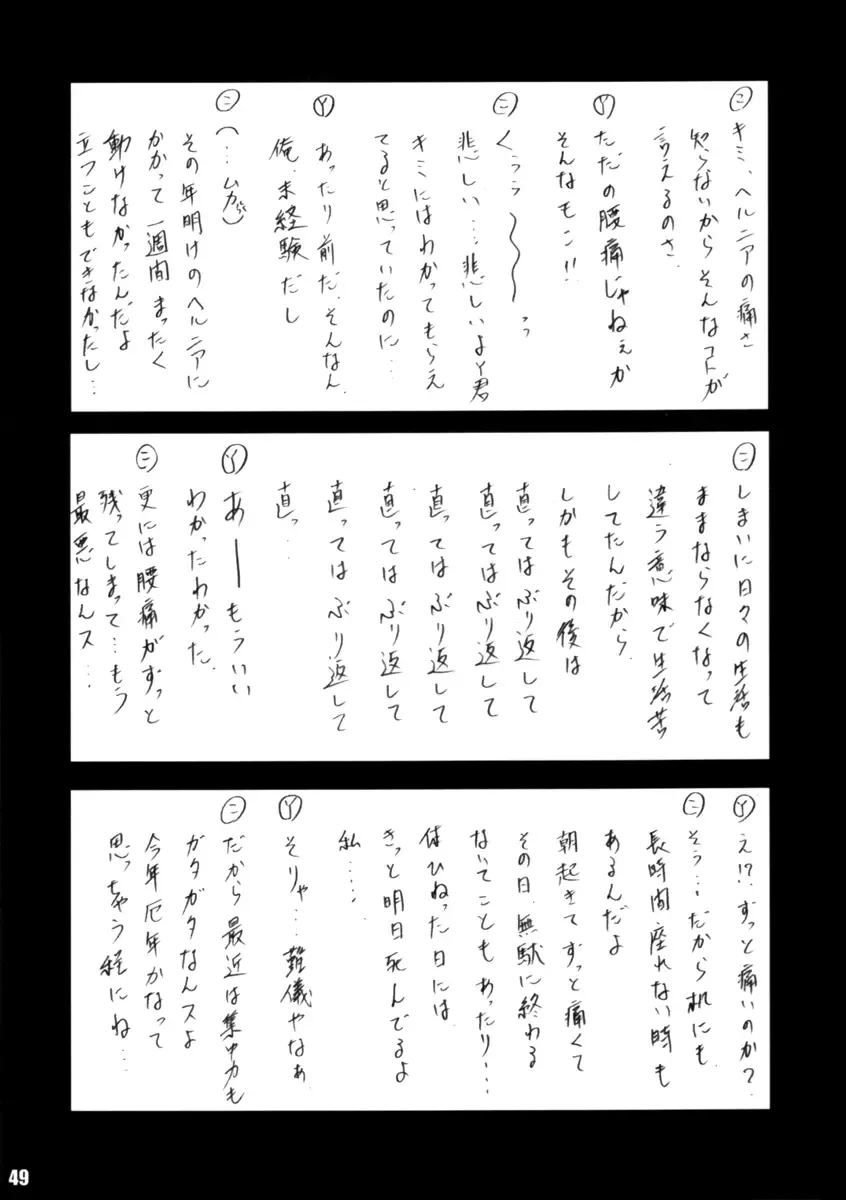 ㊁キミ、ヘルニアの痛さ
知らないからそんなコトが
言えるのさ.
Ⓨただの腰痛じゃねぇか
そんなもン!!
㊁くぅぅ〜〜〜っ
悲しい…悲しいよY君
キミにはわかってもらえ
てると思っていたのに…
Ⓨあったり前だ.そんなん.
俺.未経験だし
㊁(…ムカッ)
その年明けのヘルニアに
かかって一週間まったく
動けなかったんだよ
立つこともできなかったし…
㊁しまいに日々の生活も
ままならなくなって
違う意味で生活苦
してたんだから
しかもその後は
直ってはぶり返して
直ってはぶり返して
直ってはぶり返して
直ってはぶり返して
直ってはぶり返して
直っ…
Ⓨあーもういい
わかったわかった.
㊁更には腰痛がずっと
残ってしまって…もう
最悪なんス…
Ⓨえ!?ずっと痛いのか?
㊁そう…だから机にも
長時間座れない時も
あるんだよ
朝起きてずっと痛くて
その日.無駄に終わる
ないてこともあったり…
体ひねった日には
きっと明日死んでるよ
私……
Ⓨそりゃ…難儀やなぁ
㊁だから最近は集中力も
ガタガタなんスよ
今年厄年かなって
思っちゃう程にね…
49